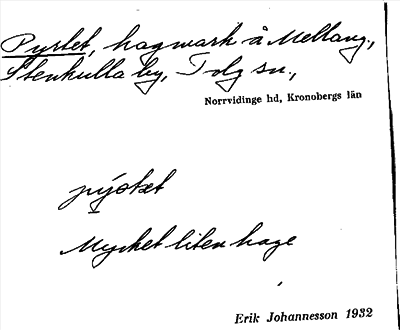 Pyrtet, hagmark å Mellang.,
Stenkulla by, Tolg sn.,
Norrvidinge hd, Kronobergs län
Mycket liten hage
Erik Johannesson 1932